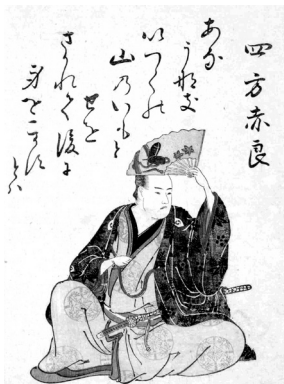 四方赤良
あな
うなき
いつくの
山乃いもと
せを
さかれて後に
身をこかす
とハ